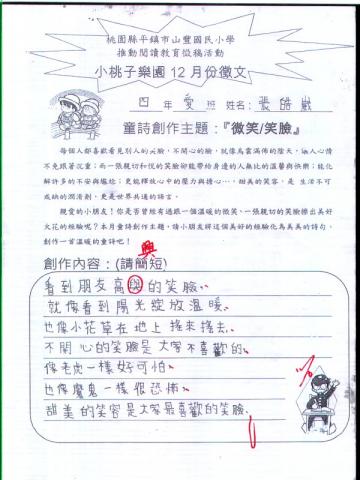 桃園縣平鎮市山豐國民小學
推動閱讀教育徵稿活動
小桃子樂園12月份徵文
四 年 愛 班 姓名: 張皓
童詩創作主題:『微笑/笑臉』
每個人都喜歡看見別人的笑臉,不開心的臉,就像烏雲滿佈的陰天,讓人心情
不免跟著沉重;而一張親切和悅的笑臉卻能帶給身邊的人無比的溫馨與快樂;能化
解許多的不安與尷尬;更能釋放心中的壓力與擔心…,甜美的笑容,是 生活不可
或缺的潤滑劑,更是世界共通的語言。
親愛的小朋友!你是否曾經有過跟一個溫暖的微笑、一張親切的笑臉擦出美好
火花的經驗呢?本月童詩創作主題,請小朋友將這個美好的經驗化為美美的詩句,
創作一首溫暖的童詩吧!
興
創作內容:(請簡短)
看到朋友高興的笑臉、
就像看到陽光綻放溫暖、
也像小花草在地上搖來搖去、
不開心的笑臉是大家不喜歡的、
像老虎一樣好可怕、
也像魔鬼一樣很恐怖、
甜美的笑容是大家最喜歡的笑臉、